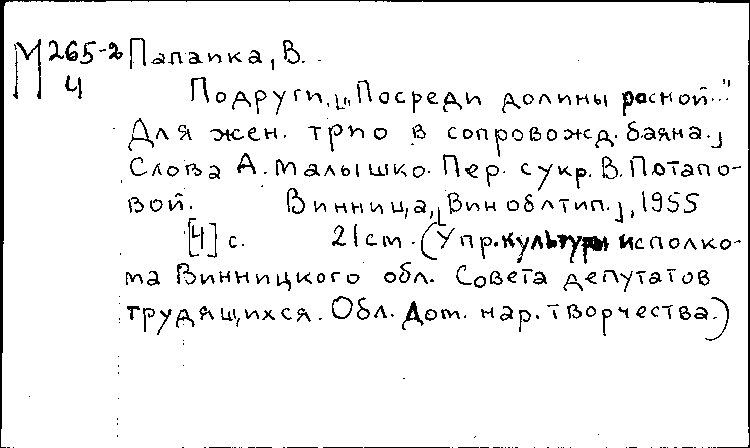 М 265-2 Папаика, В.
4
Подруги. [„Посреди долины росной..."
Для жен. трио в сопровожд. баяна.]
Слова А. Малышко. Пер. с укр. В. Потапо-
вой. Винница, [Виноблтип.], 1955
[4] с. 21 cm. (Упр. культуры исполко-
ма Винницкого обл. Совета депутатов
трудящихся. Обл. Дом. нар. творчества.)